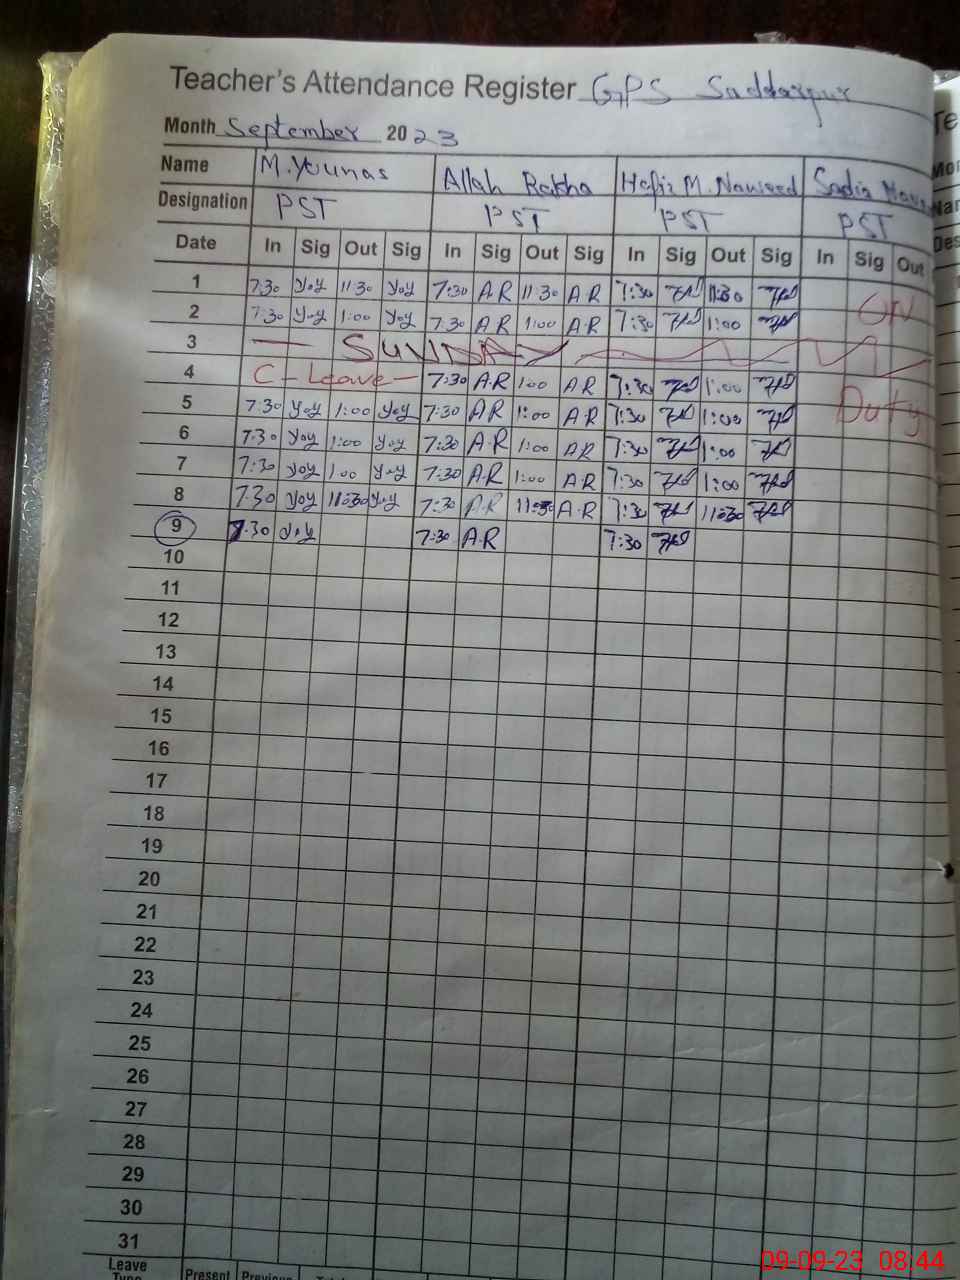 Teacher's Attendance Register GPS Saddarpur
Month September 2023
Name M.Younas Allah Rakha Hafiz M. Naweed Sadia
Designation PST PST PST PST
Date In Sig Out Sig In Sig Out Sig In Sig Out Sig In Sig Out
1 7:30 yoy 11:30 yoy 7:30 A.R 11:30 A.R 7:30 11:30 ON
2 7:30 yoy 1:00 yoy 7:30 A.R 1:00 A.R 7:30 1:00
3 SUNDAY
4 C-Leave 7:30 A.R 1:00 A.R 7:30 1:00 Duty
5 7:30 yoy 1:00 yoy 7:30 A.R 1:00 A.R 7:30 1:00
6 7:30 yoy 1:00 yoy 7:30 A.R 1:00 A.R 7:30 1:00
7 7:30 yoy 1:00 yoy 7:30 A.R 1:00 A.R 7:30 1:00
8 7:30 yoy 11:30 yoy 7:30 A.R 11:30 A.R 7:30 11:30
9 7:30 yoy 7:30 A.R 7:30
10
11
12
13
14
15
16
17
18
19
20
21
22
23
24
25
26
27
28
29
30
31
Leave
Type Present Previous
09-09-23 08:44